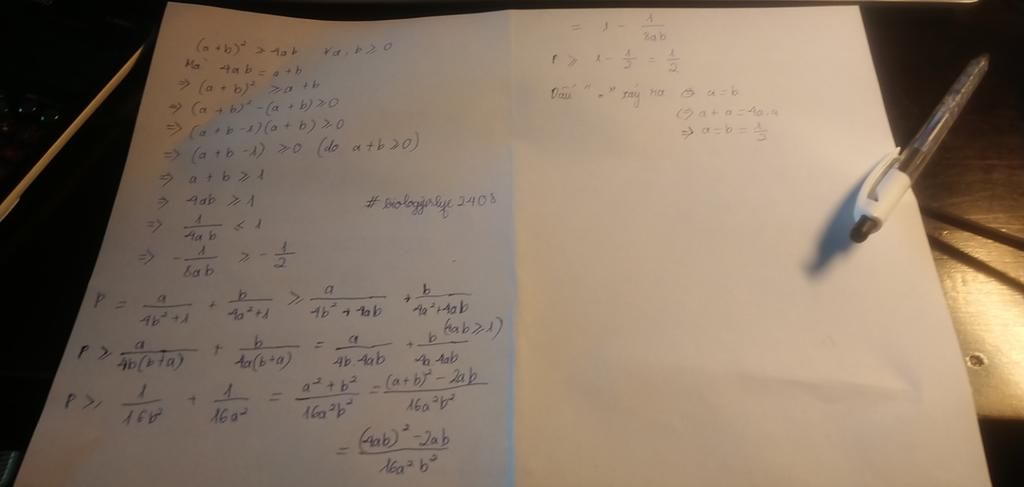 (a+b)² ≥ 4ab ∀a,b ≥ 0
Mà 4ab = a+b
⇒ (a+b)² ≥ a+b
⇒ (a+b)² - (a+b) ≥ 0
⇒ (a+b-1)(a+b) ≥ 0
⇒ (a+b-1) ≥ 0 (do a+b ≥ 0)
⇒ a+b ≥ 1
⇒ 4ab ≥ 1
⇒ 1/4ab ≤ 1
⇒ -1/8ab ≥ -1/2
P = a/(4b²+1) + b/(4a²+1) ≥ a/(4b²+4ab) + b/(4a²+4ab)
(4ab ≥ 1)
P ≥ a/4b(b+a) + b/4a(b+a) = a/4b.4ab + b/4a.4ab
P ≥ 1/16b² + 1/16a² = (a²+b²)/16a²b² = ((a+b)²-2ab)/16a²b²
= ((4ab)²-2ab)/16a²b²
= 1 - 1/8ab
P ≥ 1 - 1/2 = 1/2
Dấu "=" xảy ra ⇔ a=b
⇔ a+a = 4a.a
⇒ a=b = 1/2